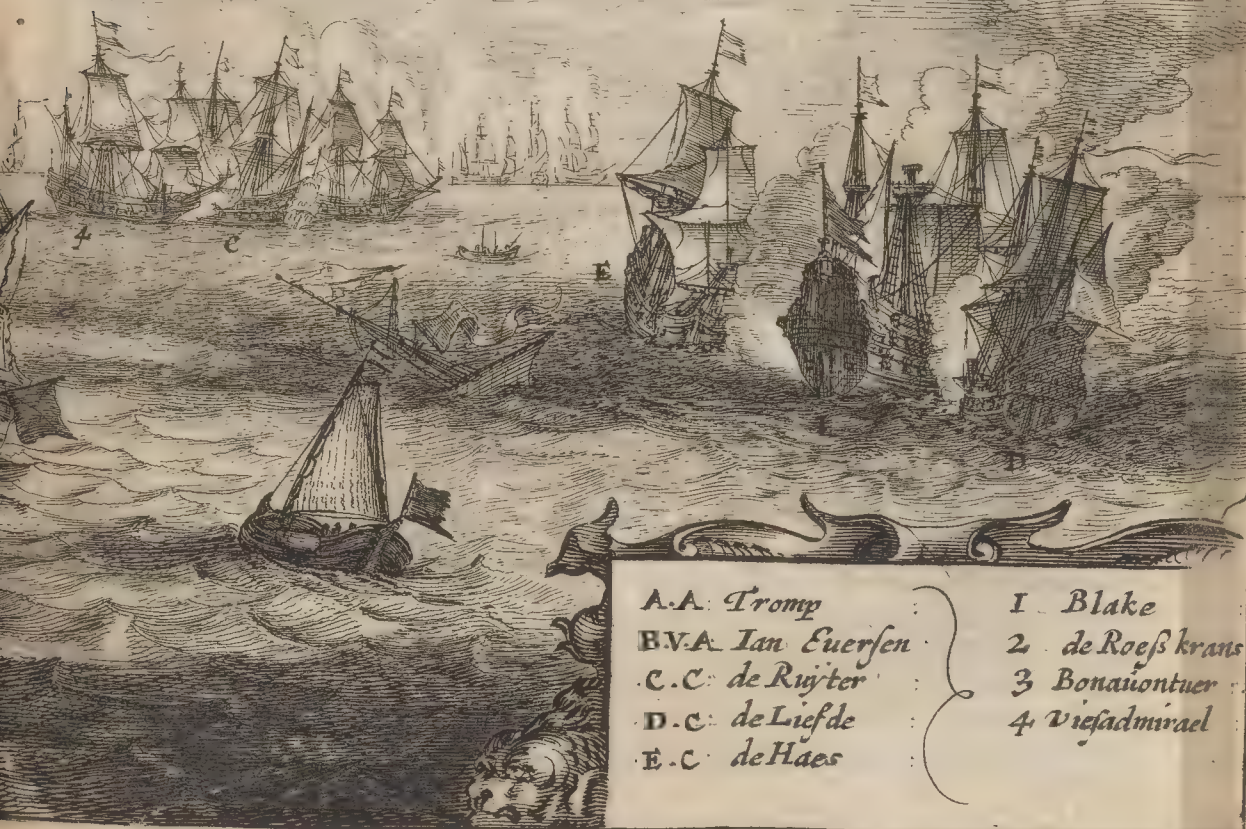 4 C
E
D
A.A: Tromp :
B.V.A Ian Euerſen :
C.C: de Ruÿter :
D.C: de Liefde :
E.C de Haes :
1 Blake
2 de Roeſs krans
3 Bonaūontuer :
4 Vieſadmirael :